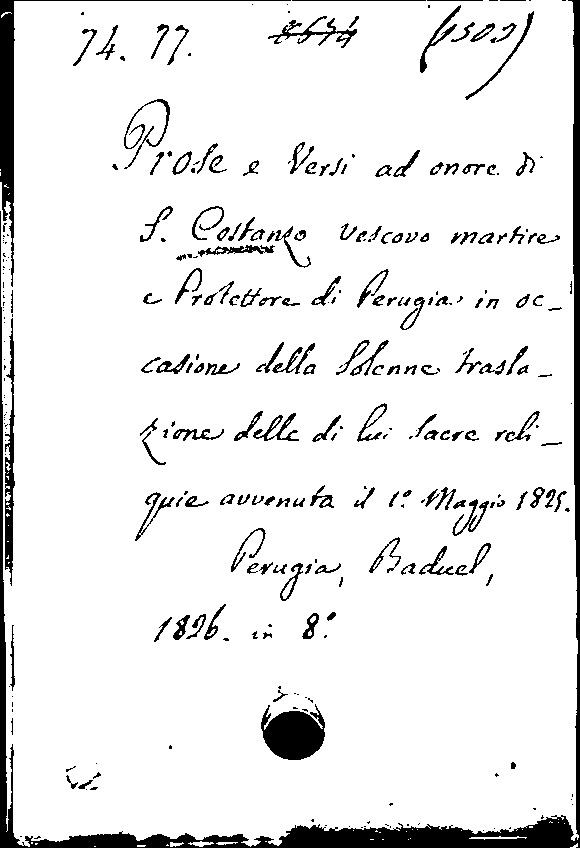 74. 77. 8674 (1503)
Prose e Versi ad onore di
S. Costanzo vescovo martire
e Protettore di Perugia in oc_
casione della Solenne trasla_
zione delle di lui sacre reli_
quie avvenuta il 1º Maggio 1825.
Perugia, Baduel,
1826. in 8º